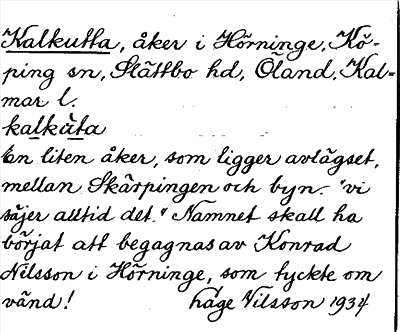 Kalkutta, åker i Hörninge, Kö-
ping sn, Slättbo hd, Öland, Kal-
mar l.
kalkuta
En liten åker, som ligger avlägset,
mellan Skärpingen och byn. - "vi
säjer alltid det." Namnet skall ha
börjat att begagnas av Konrad
Nilsson i Hörninge, som tyckte om
vänd! håge Nilsson 1934